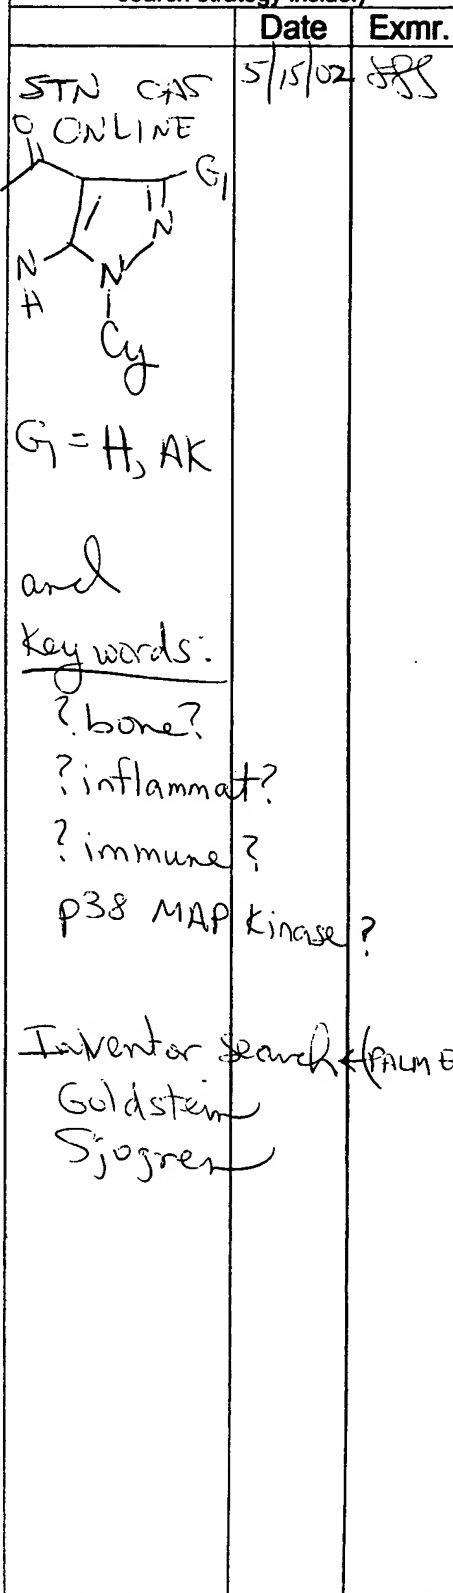 search strategy
Date Exmr.
STN CAS 5/15/02
ONLINE
O
G1
N
N
N
H
Cy
G1 = H, AK
and
Key words:
? bone?
? inflammat?
? immune?
p38 MAP Kinase?
Inventor Search (PALM
Goldstein
Sjogren